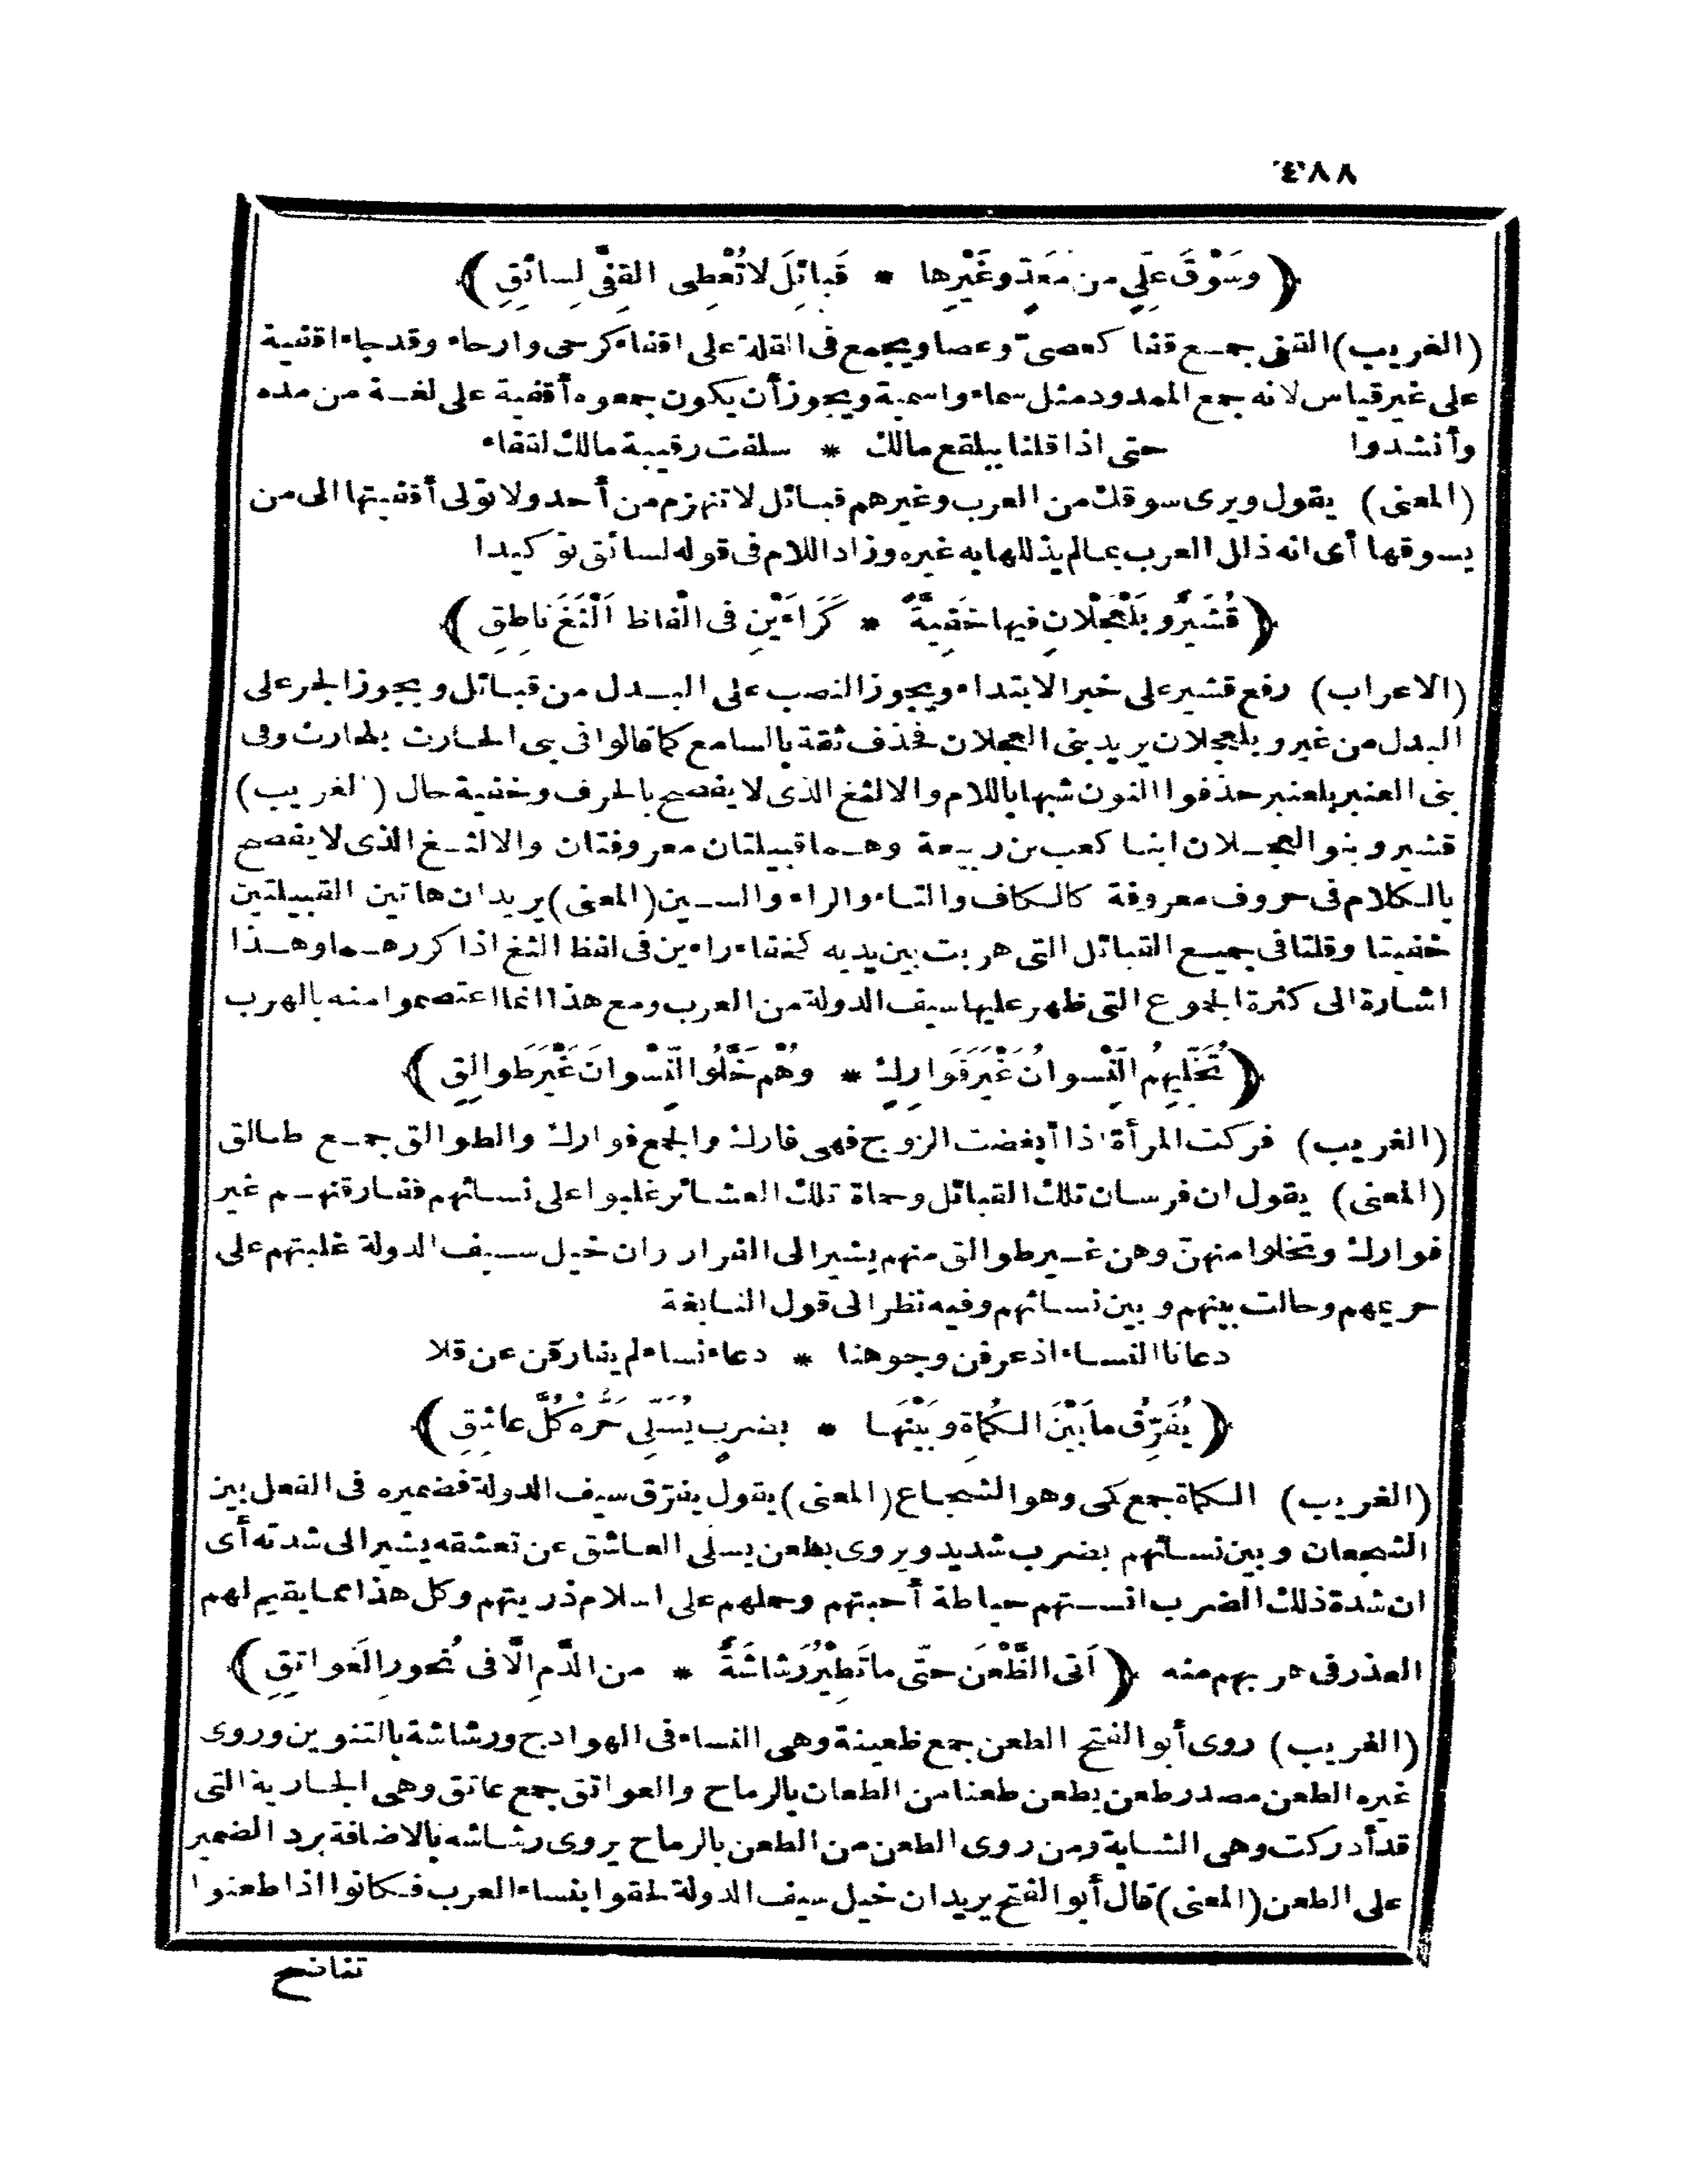 ٤٨٨
﴿وَسَوْقَ عَلِيٍّ من مَعَدٍّ وغَيْرِها * قَبائِلَ لا تُعْطِى القِفِىَّ لِسائِقِ﴾
(الغريب) القفى جمع قفا كعصىّ وعصا ويجمع فى القلة على اقفاء كرحى وارحاء وقد جاء اقفية
على غير قياس لانه جمع الممدود مثل سماء واسمية ويجوز أن يكون جمعوه أقفية على لغة من مده
وأنشدوا حتى اذا قلنا يبلقع مالك * سلفت رقيبة مالك لقفاء
(المعنى) يقول ويرى سوقك من العرب وغيرهم قبائل لا تنهزم من أحد ولا تولى أقفيتها الى من
يسوقها أى انه ذلل العرب بما لم يذللها به غيره وزاد اللام فى قوله لسائق توكيدا
﴿قُشَيْرٌ وبَلْعَجْلانِ فيها خَفِيَّةٌ * كَرَاءَيْنِ فى الْفاظِ اَلْثَغَ ناطِقِ﴾
(الاعراب) رفع قشير على خبر الابتداء ويجوز النصب على البدل من قبائل ويجوز الجر على
البدل من غير وبلعجلان يريد بنى العجلان فحذف ثقة بالسامع كما قالوا فى بنى الحارث بلحارث وفى
بنى العنبر بلعنبر حذفوا النون شبها باللام والالثغ الذى لا يفصح بالحرف وخفية حال (الغريب)
قشير وبنو العجلان ابنا كعب بن ربيعة وهما قبيلتان معروفتان والالثغ الذى لا يفصح
بالكلام فى حروف معروفة كالكاف والتاء والراء والسين (المعنى) يريد ان هاتين القبيلتين
خفيتا وقلتا فى جميع القبائل التى هربت بين يديه كخفاء راءين فى لفظ الثغ اذا كررهما وهذا
اشارة الى كثرة الجموع التى ظهر عليها سيف الدولة من العرب ومع هذا انما اعتصموا منه بالهرب
﴿تُخَلِّيهِمُ النِّسوانُ غَيْرَ فَوَارِكٍ * وهُمْ خَلَّوُا النِّسْوانَ غَيْرَ طَوالِقِ﴾
(الغريب) فركت المرأة اذا أبغضت الزوج فهى فارك والجمع فوارك والطوالق جمع طالق
(المعنى) يقول ان فرسان تلك القبائل وحماة تلك العشائر غلبوا على نسائهم ففارقنهم غير
فوارك وتخلوا منهنّ وهن غير طوالق منهم يشير الى الفرار وان خيل سيف الدولة غلبتهم على
حريمهم وحالت بينهم وبين نسائهم وفيه نظر الى قول النابغة
دعانا النساء اذ عرفن وجوهنا * دعاء نساء لم يفارقن عن قلا
﴿يُفَرِّقُ ما بَيْنَ الكُماةِ وبَيْنَها * بضربٍ يُسَلِّى حَرُّه كُلَّ عاشِقِ﴾
(الغريب) الكماة جمع كمى وهو الشجاع (المعنى) يقول يفرّق سيف الدولة فضميره فى الفعل بين
الشجعان وبين نسائهم بضرب شديد ويروى بطعن يسلى العاشق عن تعشقه يشير الى شدته أى
ان شدة ذلك الضرب انستهم حياطة أحبتهم وحملهم على اسلام ذريتهم وكل هذا مما يقيم لهم
العذر فى هربهم منه ﴿أتى الظُّعْنَ حتّى ما تَطِيْرُ رَشاشَةٌ * من الدَّمِ الّا فى نُحورِ العَواتِقِ﴾
(الغريب) روى أبو الفتح الظعن جمع ظعينة وهى النساء فى الهوادج ورشاشة بالتنوين وروى
غيره الطعن مصدر طعن يطعن طعنا من الطعان بالرماح والعواتق جمع عاتق وهى الجارية التى
قد أدركت وهى الشابة ومن روى الطعن من الطعن بالرماح يروى رشاشه بالاضافة يرد الضمير
على الطعن (المعنى) قال أبو الفتح يريد ان خيل سيف الدولة لحقوا بنساء العرب فكانوا اذا طعنوا
تفاتح